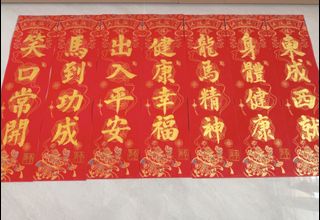 笑口常開
馬到功成
出入平安
健康幸福
龍馬精神
身體健康
東成西就